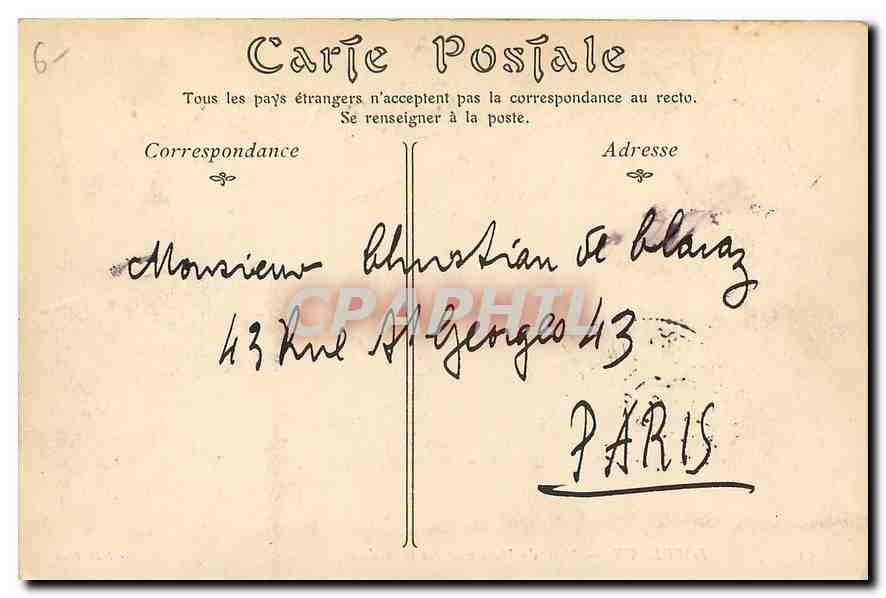 6-
Carte Postale
Tous les pays étrangers n'acceptent pas la correspondance au recto.
Se renseigner à la poste.
Correspondance
Adresse
Monsieur Christian de Claraz
CPAPHIL
43 Rue St Georges 43
PARIS